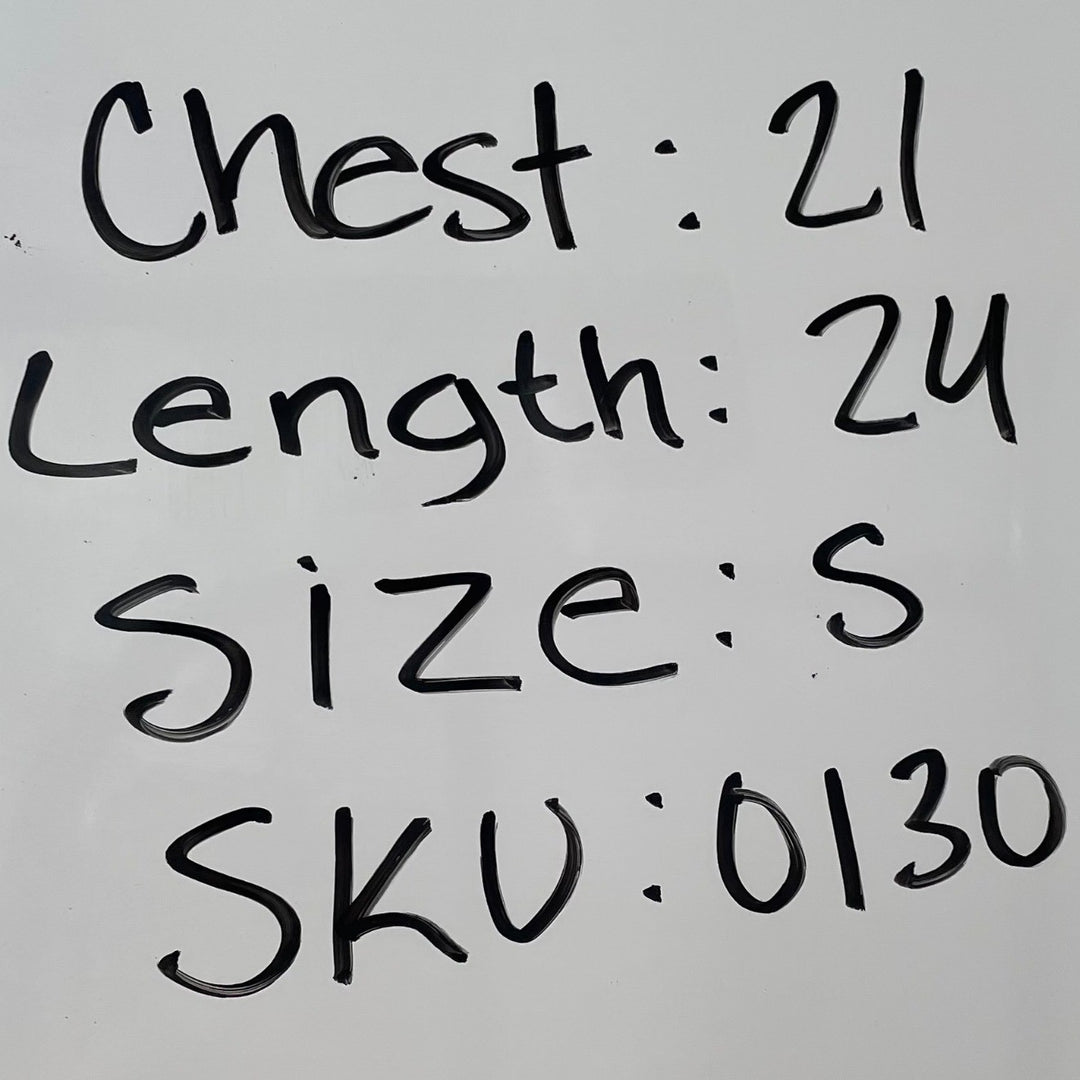 Chest: 21
Length: 24
Size: S
SKU: 0130